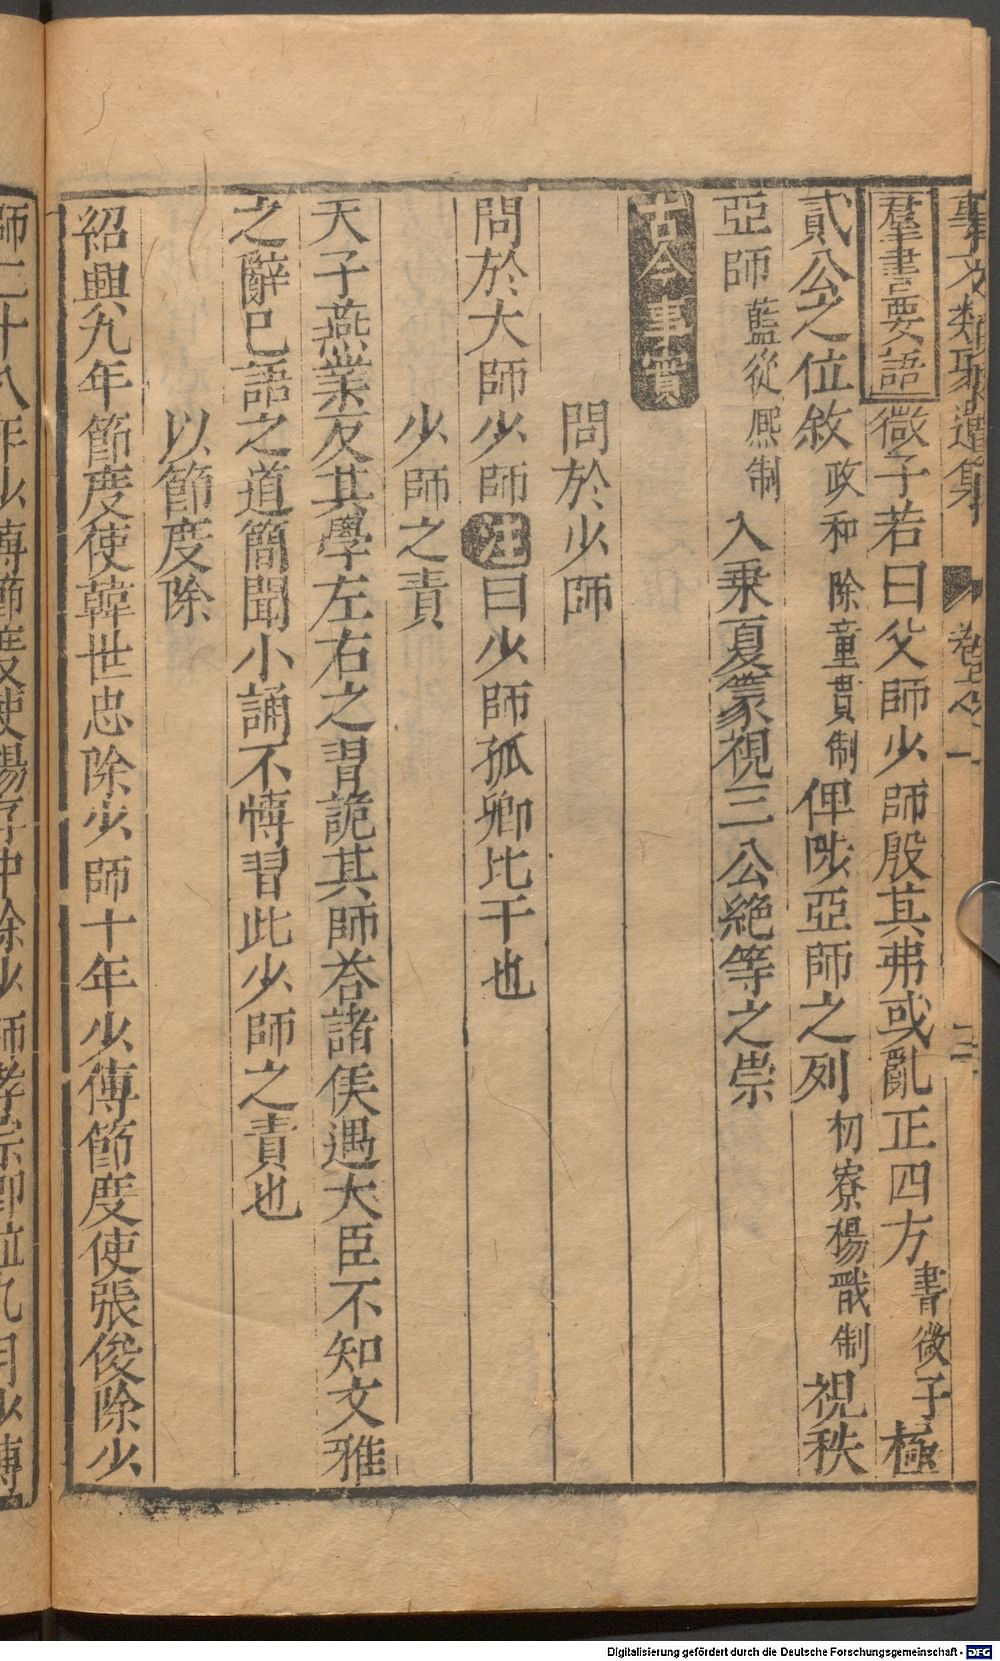 事文類聚遺集 卷之一 二
羣書要語 微子若曰父師少師殷其弗或亂正四方 書微子 極
貳公之位敘 政和除童貫制 俾陟亞師之列 初寮楊戩制 視秩
亞師 藍從熈制 入乗夏篆視三公絶等之崇
古今事實
問於少師
問於大師少師注曰少師孤卿比干也
少師之責
天子燕業反其學左右之習詭其師荅諸侯遇大臣不知文雅
之辭已語之道簡聞小誦不愽習此少師之責也
以節度除
紹興九年節度使韓世忠除少師十年少傅節度使張俊除少
師二十八年少傅節度使楊存中除少師孝宗即位九月少傅
Digitalisierung gefördert durch die Deutsche Forschungsgemeinschaft - DFG